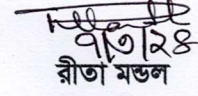 ৭/৩/২৪
রীতা মন্ডল